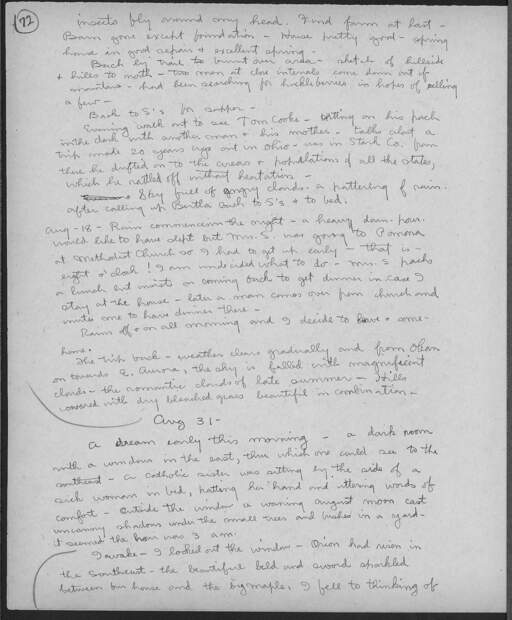 72
insects fly around my head. Find farm at last -
Barn gone except foundation - House pretty good - spring
house in good repair & excellent spring.
Back by trail to burnt over area - sketch of hillside
& hills to north - two men at close intervals come down out of
mountain - had been searching for huckleberries in hopes of selling
a few -
Back to S's for supper -
Evening walk out to see Tom Cooke - sitting on his porch
in the dark with another man & his mother - talks about a
trip made 20 years ago out in Ohio - was in Stark Co. from
there he drifted on to the areas & populations of all the states,
which he rattled off without hesitation -
Sky full of angry clouds - a pattering of rain.
after calling up Bertha back to S's & to bed.
Aug - 18 - Rain commences in the night - a heavy down-pour.
would like to have slept but Mrs. S. was going to Pomona
at Methodist Church so I had to get up early - that is -
eight o'clock! I am undecided what to do - Mrs. S packs
a lunch but insists on coming back to get dinner in case I
stay at the house - later a man comes over from church and
invites me to have dinner there -
Rain off & on all morning and I decide to leave & come
home.
The trip back - weather clears gradually and from Olean
on towards E. Aurora, the sky is filled with magnificent
clouds - the romantic clouds of late summer - Hills
covered with dry bleached grass beautiful in combination -
Aug 31 -
A dream early this morning - a dark room
with a window in the east, thru which one could see to the
southeast - a Catholic sister was sitting by the side of a
sick woman in bed, patting her hand and uttering words of
comfort - outside the window a waning august moon cast
uncanny shadows under the small trees and bushes in a yard -
it seemed the hour was 3 am.
I awake - I looked out the window - Orion had risen in
the Southeast - the beautiful belt and sword sparkled
between our house and the big maple. I fell to thinking of